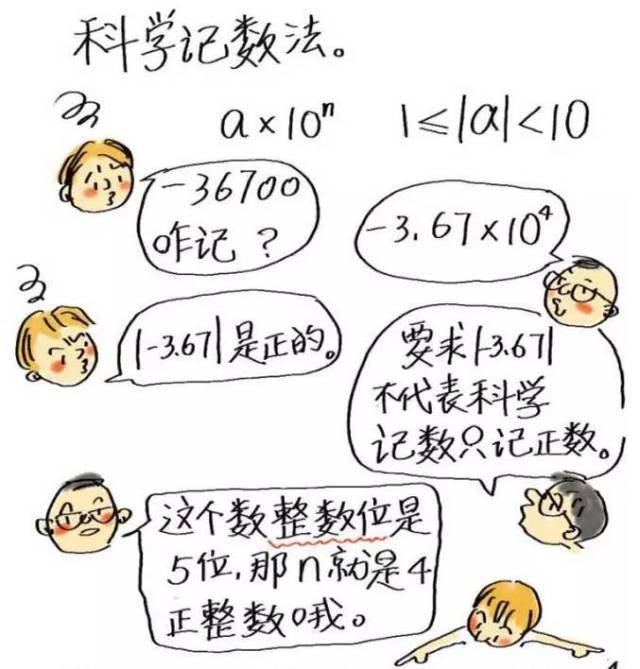 科学记数法。
a×10ⁿ 1≤|a|<10
-36700
咋记？
-3.67×10⁴
|-3.67|是正的。
要求|-3.67|
不代表科学
记数只记正数。
这个数整数位是
5位,那n就是4
正整数哦。